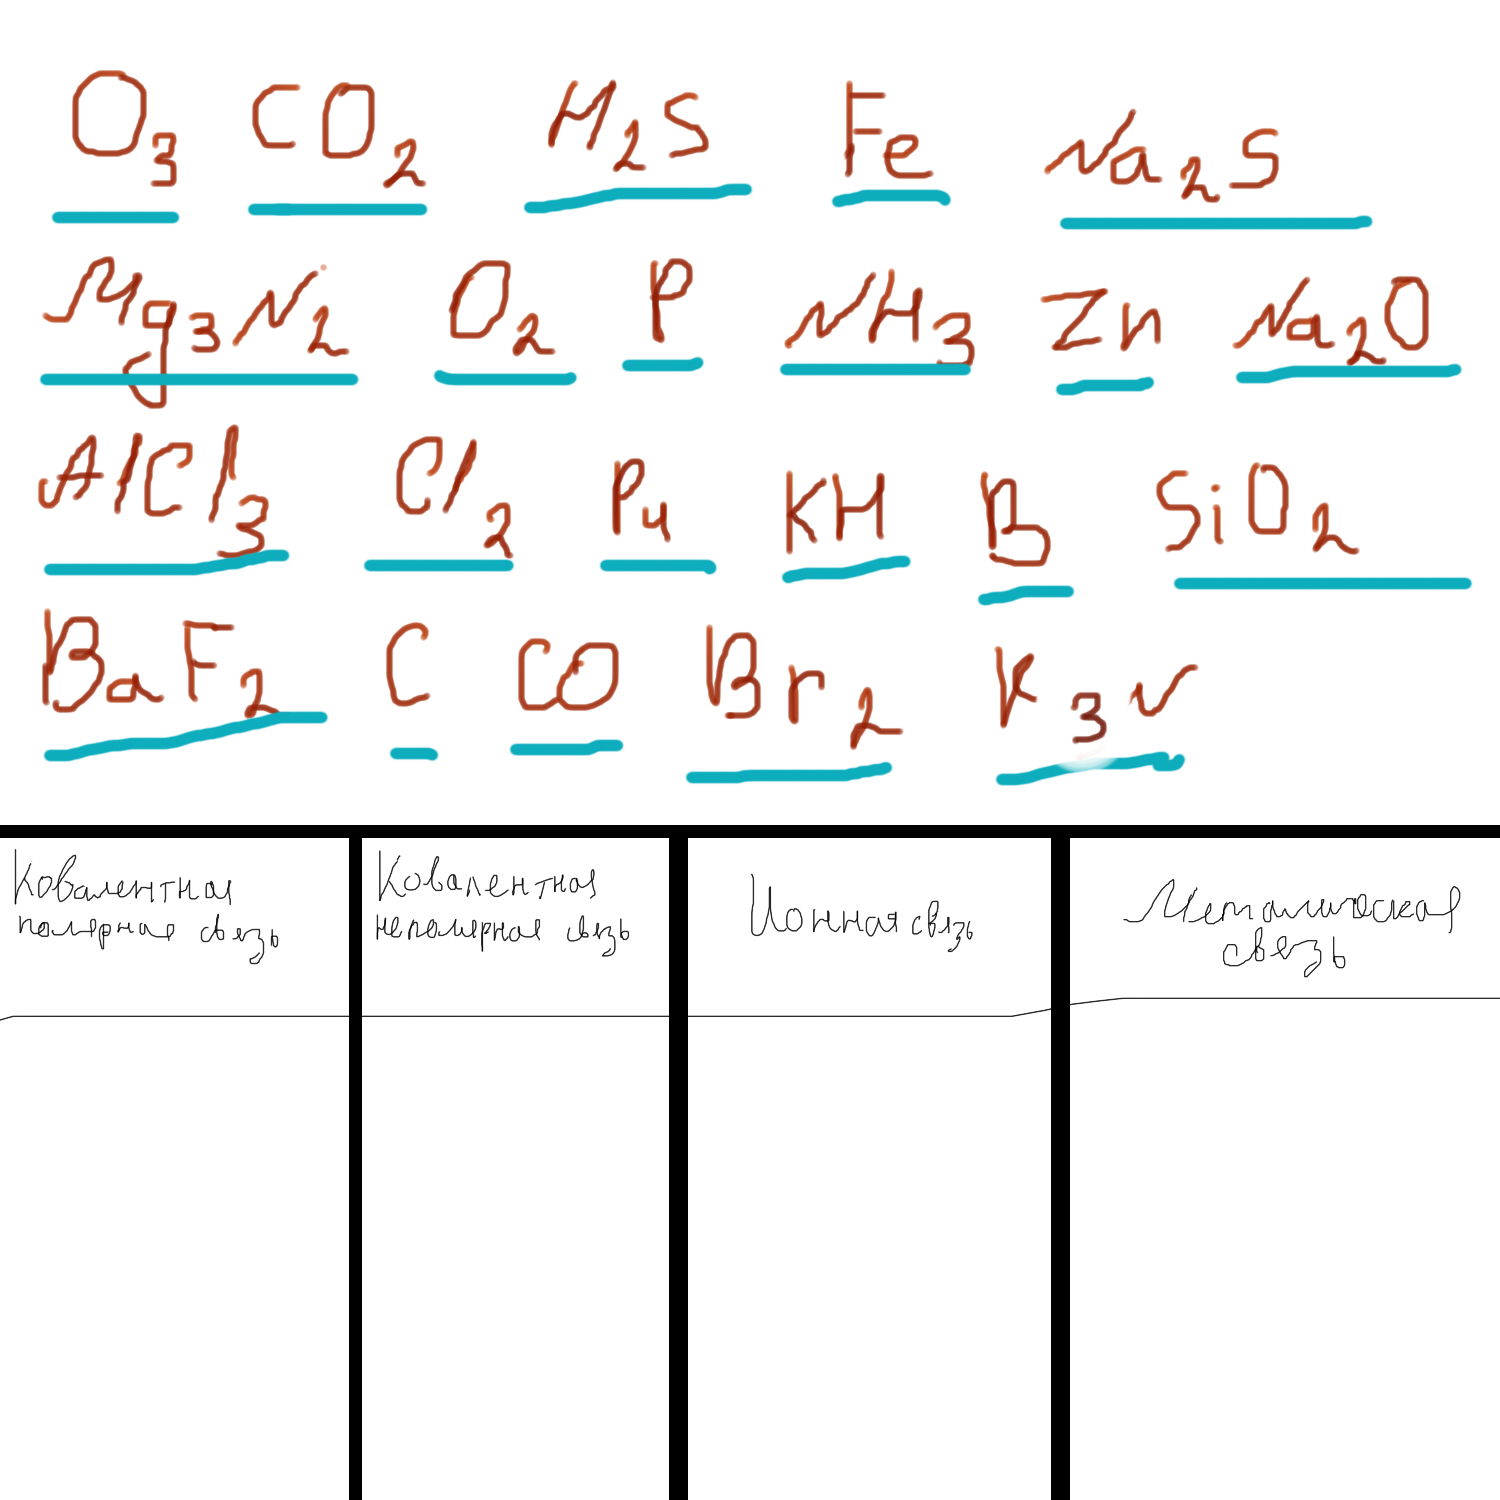 O3 CO2 H2S Fe Na2S
Mg3N2 O2 P NH3 Zn Na2O
AlCl3 Cl2 P4 KH B SiO2
BaF2 C CO Br2 K3N
Ковалентная
полярная связь
Ковалентная
неполярная связь
Ионная связь
Металлическая
связь